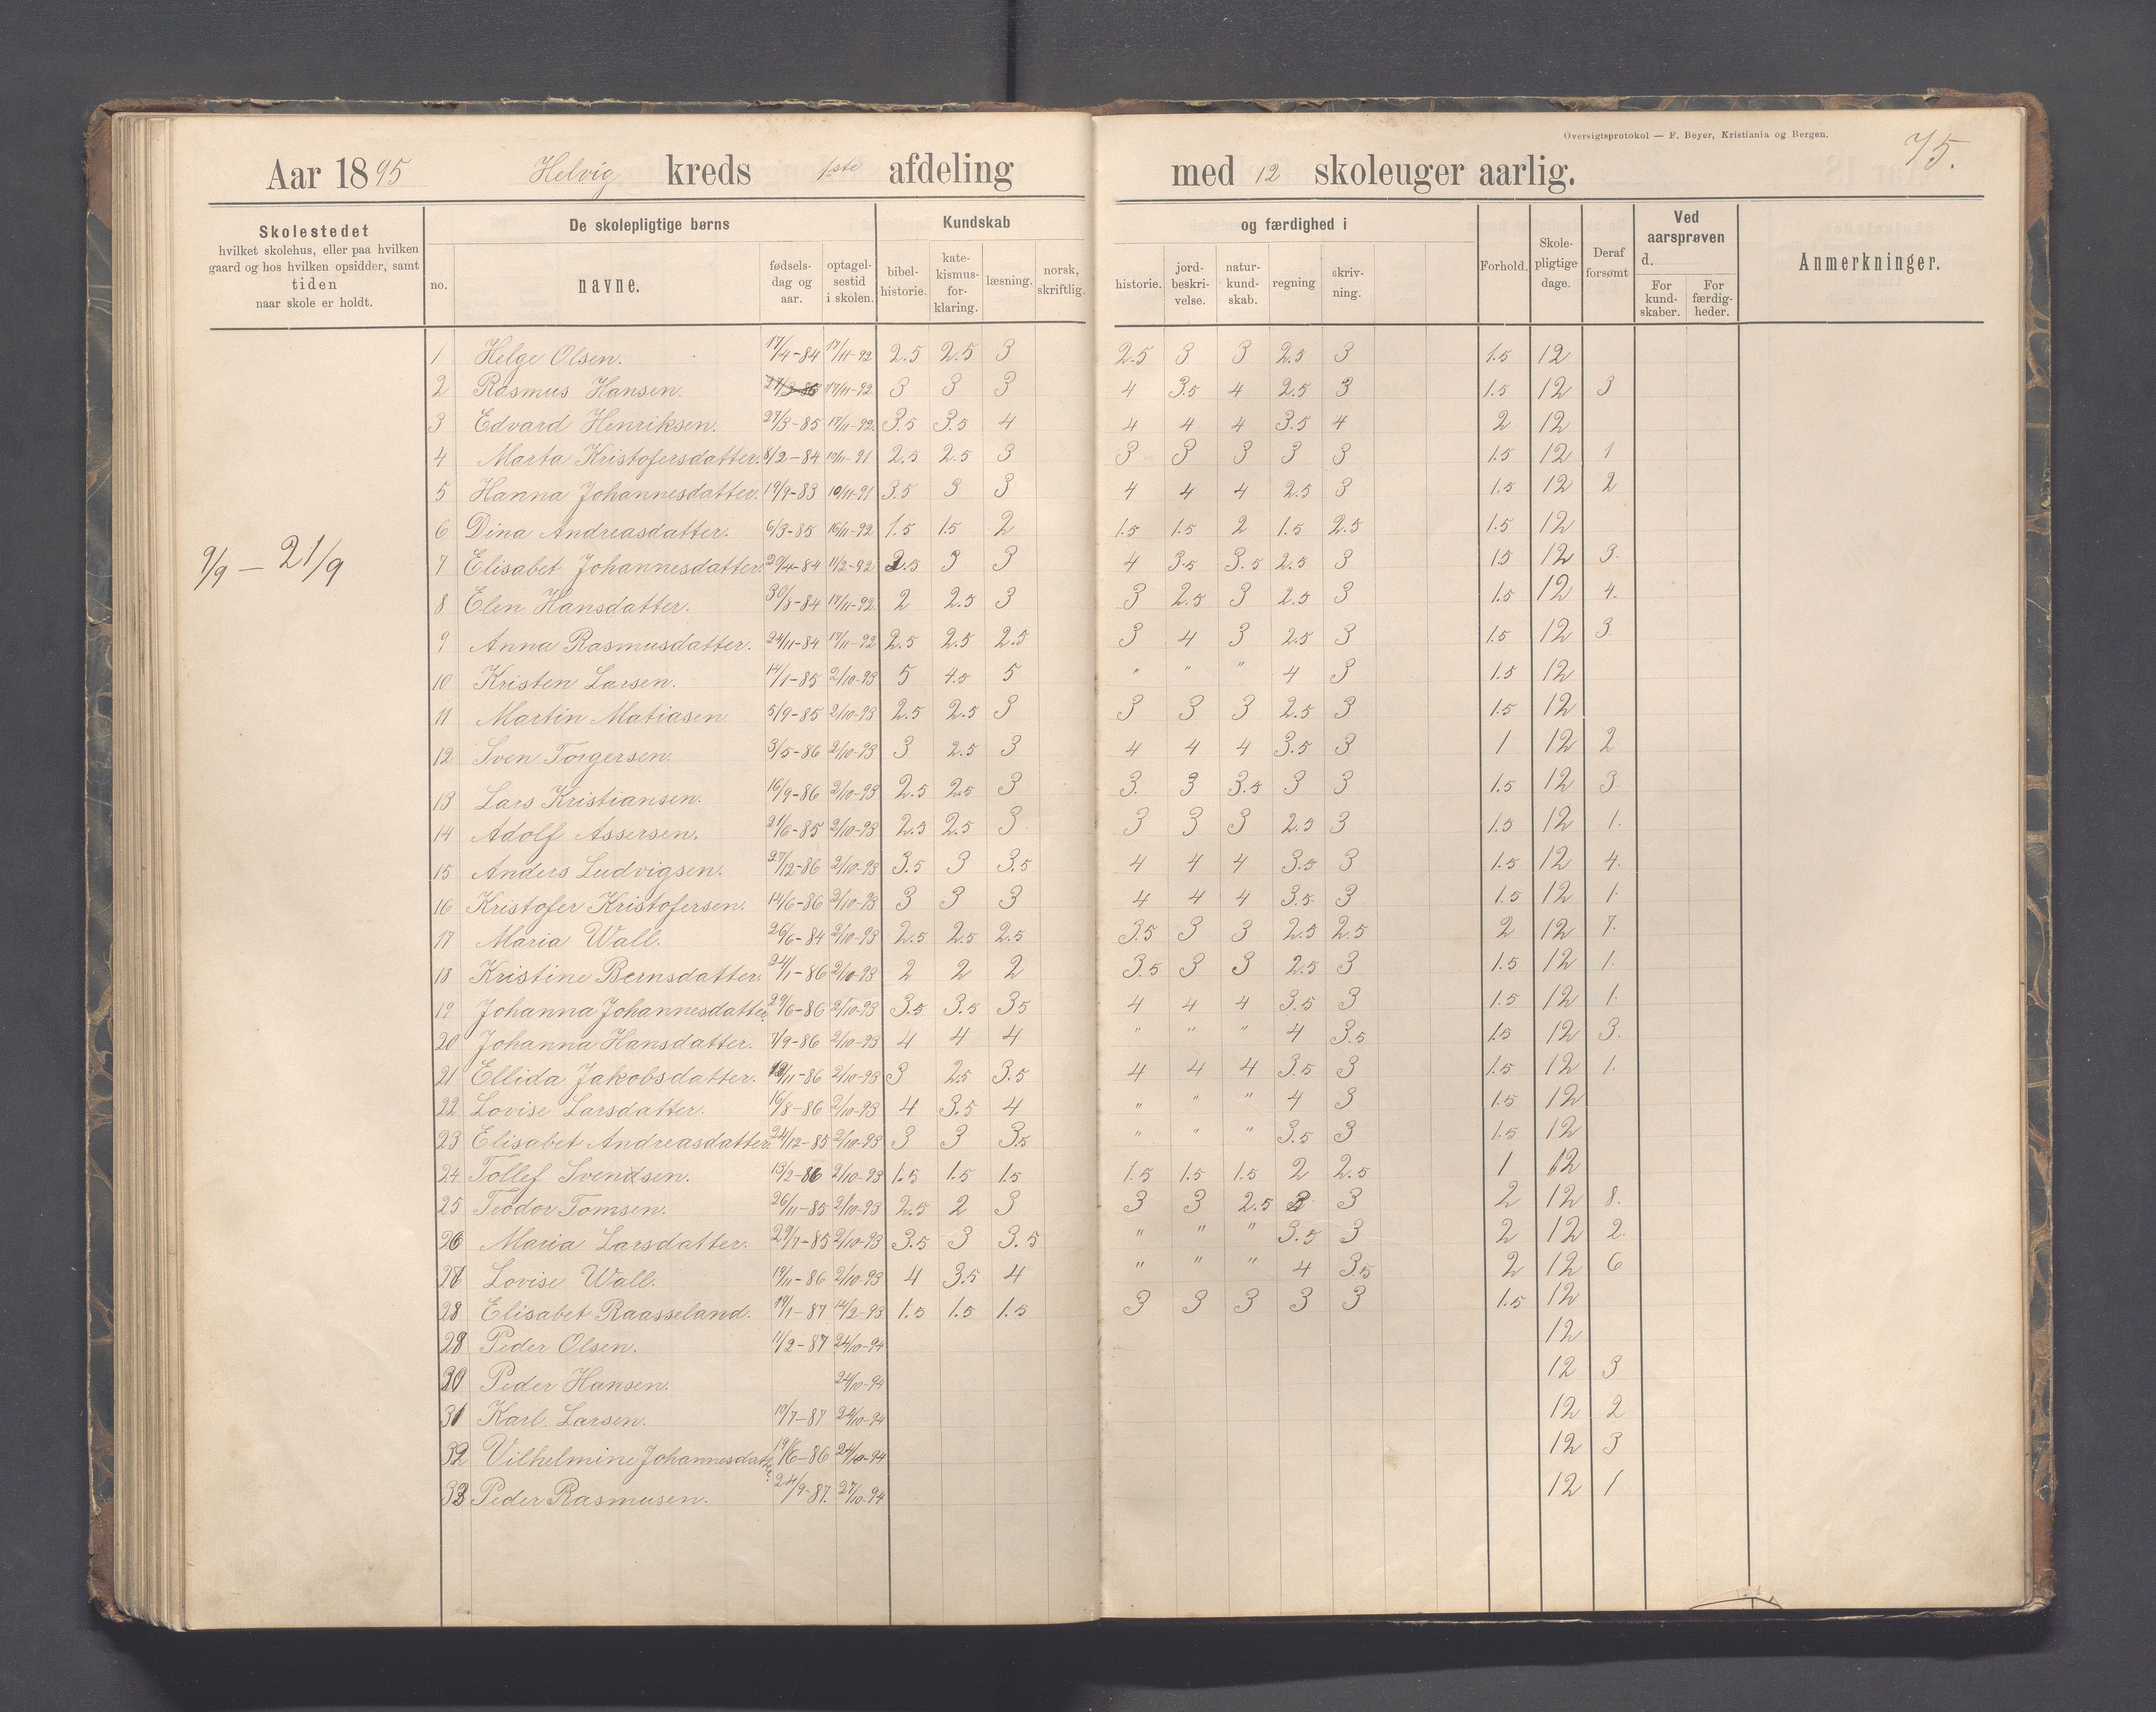 Oversigtsprotokol — F. Beyer, Kristiania og Bergen.
75.
Aar 1895 Helvig kreds 1ste afdeling med 12 skoleuger aarlig.
Skolestedet hvilket skolehus, eller paa hvilken gaard og hos hvilken opsidder, samt tiden naar skole er holdt.
De skolepligtige børns
no. navne. fødsels-dag og aar. optagel-sestid i skolen.
Kundskab og færdighed i
bibel-historie. kate-kismus-for-klaring. læsning. norsk, skriftlig. historie. jord-beskri-velse. natur-kund-skab. regning skriv-ning.
Forhold. Skole-pligtige dage. Deraf forsømt
Ved aarsprøven d.
For kund-skaber. For færdig-heder.
Anmerkninger.
9/9 — 21/9
1 Helge Olsen. 17/4-84 17/11-92 2.5 2.5 3 2.5 3 3 2.5 3 1.5 12
2 Rasmus Hansen. 17/11-92 3 3 3 4 3.5 4 2.5 3 1.5 12 3
3 Edvard Henriksen. 27/3-85 17/11-92. 3.5 3.5 4 4 4 4 3.5 4 2 12
4 Marta Kristofersdatter. 8/2-84 10/11-91 2.5 2.5 3 3 3 3 3 3 1.5 12 1
5 Hanna Johannesdatter. 19/9-83 10/11-91 3.5 3 3 4 4 4 2.5 3 1.5 12 2
6 Dina Andreasdatter. 6/3-85 16/11-92 1.5 1.5 2 1.5 1.5 2 1.5 2.5 1.5 12
7 Elisabet Johannesdatter. 29/4-84 11/2-92 3 3 4 3.5 3.5 2.5 3 1.5 12 3.
8 Elen Hansdatter. 30/8-84 17/11-92. 2 2.5 3 3 2.5 3 2.5 3 1.5 12 4.
9 Anna Rasmusdatter. 24/11-84 17/11-92 2.5 2.5 2.5 3 4 3 2.5 3 1.5 12 3
10 Kristen Larsen. 14/1-85 2/10-93 5 4.5 5 " " " 4 3 1.5 12
11 Martin Matiasen 5/9-85 2/10-93 2.5 2.5 3 3 3 3 2.5 3 1.5 12
12 Sven Torgersen. 3/5-86 2/10-93 3 2.5 3 4 4 4 3.5 3 1 12 2
13 Lars Kristiansen. 16/9-86 2/10-93 2.5 2.5 3 3. 3 3.5 3 3 1.5 12 3
14 Adolf Assersen. 21/6-85 2/10-93 2.5 2.5 3 3 3 3 2.5 3 1.5 12 1.
15 Anders Ludvigsen. 27/12-86 2/10-93 3.5 3 3.5 4 4 4 3.5 3 1.5 12 4.
16 Kristofer Kristofersen. 14/6-86 2/10-93 3 3 3 4 4 4 3.5 3 1.5 12 1.
17 Maria Wall. 26/6-84 2/10-93 2.5 2.5 2.5 3.5 3 3 2.5 2.5 2 12 7.
18 Kristine Bernsdatter. 24/1-86 2/10-93 2 2 2 3.5 3 3 2.5 3 1.5 12 1.
19 Johanna Johannesdatter. 29/6-86 2/10-93 3.5 3.5 3.5 4 4 4 3.5 3 1.5 12 1.
20 Johanna Hansdatter. 7/9-86 2/10-93 4 4 4 " " " 4 3.5 1.5 12 3.
21 Ellida Jakobsdatter. 2/10-93 3 2.5 3.5 4 4 4 3.5 3 1.5 12 1.
22 Lovise Larsdatter. 16/8-86 2/10-93 4 3.5 4 " " " 4 3 1.5 12
23 Elisabet Andreasdatter. 24/12-85 2/10-93 3 3 3.5 " " " 3.5 3 1.5 12
24 Tollef Svendsen. 13/2-86 2/10-93 1.5 1.5 1.5 1.5 1.5 1.5 2 2.5 1 12
25 Teodor Tomsen. 26/11-85 2/10-93 2.5 2 3 3 3 2.5 3 3 2 12 8.
26 Maria Larsdatter. 29/7-85 2/10-93 3.5 3 3.5 " " " 3.5 3 2 12 2.
27 Lovise Wall. 19/11-86 2/10-93 4 3.5 4 " " " 4 3.5 2 12 6
28 Elisabet Raasseland. 19/1-87 14/2-93 1.5 1.5 1.5 3 3 3 3 3 1.5 12
29 Peder Olsen. 11/2-87 24/10-94 12
30 Peder Hansen. 24/10-94 12 3
31 Karl Larsen. 19/7-87 24/10-94 12 2
32 Vilhelmine Johannesdatter. 19/6-86 24/10-94 12 3
33 Peder Rasmusen. 24/9-87. 27/10-94 12 1